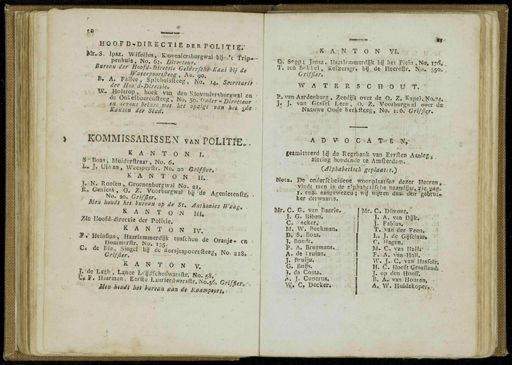 HOOFD-DIRECTIE DER POLITIE.
Mr. S. Ipsz. Wiselius, Kloveniersburgwal bij 't Trip-
penhuis, No. 62. Directeur.
Bureau der Hoofd-Directie Geldersche Kaai bij de
Waterpoortsteeg, No. 90.
B. A. Fallee, Spinhuissteeg, No. 14. Secretaris
der Hoofd-Directie.
W. Holtrop, hoek van den Kloveniersburgwal en
de Onkelboerensteeg, No. 30. Onder-Directeur
en tevens belast met het opzigt van het 3de
Kanton der Stad.
KOMMISSARISSEN VAN POLITIE.
KANTON I.
S. Boas, Muiderstraat, No. 6.
L. J. Ulman, Weesperstr. No. 20 Griffier.
KANTON II.
J. N. Roosen, Groenenburgwal No. 21.
R. Gansens, O. Z. Voorburgwal bij de Agnietenstr.
No. 20. Griffier.
Men houdt het bureau op de St. Anthonies Waag.
KANTON III.
Zie Hoofd-directie der Politie.
KANTON IV.
F. Heinsius, Haarlemmerdijk tusschen de Oranje- en
Dommerstr. No. 125.
C. de Bie, Singel bij de Roosjespoortsteeg, No. 218.
Griffier.
KANTON V.
J. de Lath, Lange Leijdschedwarsstr. No. 58.
C. F. Haarman, Eerste Lauriersdwarsstr. No. 56. Griffier.
Men houdt het bureau aan de Raampoort.
KANTON VI.
Haarlemmerdijk bij het Plein, No. 176.
T. ten Bokkel, Keizersgr. bij de Heerestr. No. 350.
Griffier.
WATERSCHOUT.
P. van Aardenburg, Zeedijk over de O. Z. Kapel, No. 72.
J. J. van Gessel Leen, O. Z. Voorburgwal over de
Nauwe Oude Kerksteeg, No. 116. Griffier.
ADVOCATEN,
geadmitteerd bij de Regtbank van Eersten Aanleg,
zitting houdende te Amsterdam.
(Alphabetisch geplaatst.)
Nota. De onderscheidene woonplaatsen dezer Heeren,
vindt men in de alphabetische naamlijst,
enz. aangewezen; wij wijzen den
gebruiker derwaarts.
Mr. C. G. van Baerle.
J. G. Biben.
C. Backer.
M. W. Beekman.
D. S. Boas.
J. Bondt.
P. A. Brugmans.
A. de Bruine.
J. Bruijn.
G. Buijn.
I. da Costa.
A. J. Cuperus.
W. C. Decker.
Mr. C. Dixon.
J. A. van Dijk.
J. Fabius.
T. van der Feen.
W. J. de Gijselaar.
C. Hagen.
M. C. van Hall.
F. A. van Hall.
W. J. C. van Hasselt.
H. C. Hooft Graafland.
J. op den Hooff.
B. A. van Houten.
A. W. Huidekoper.